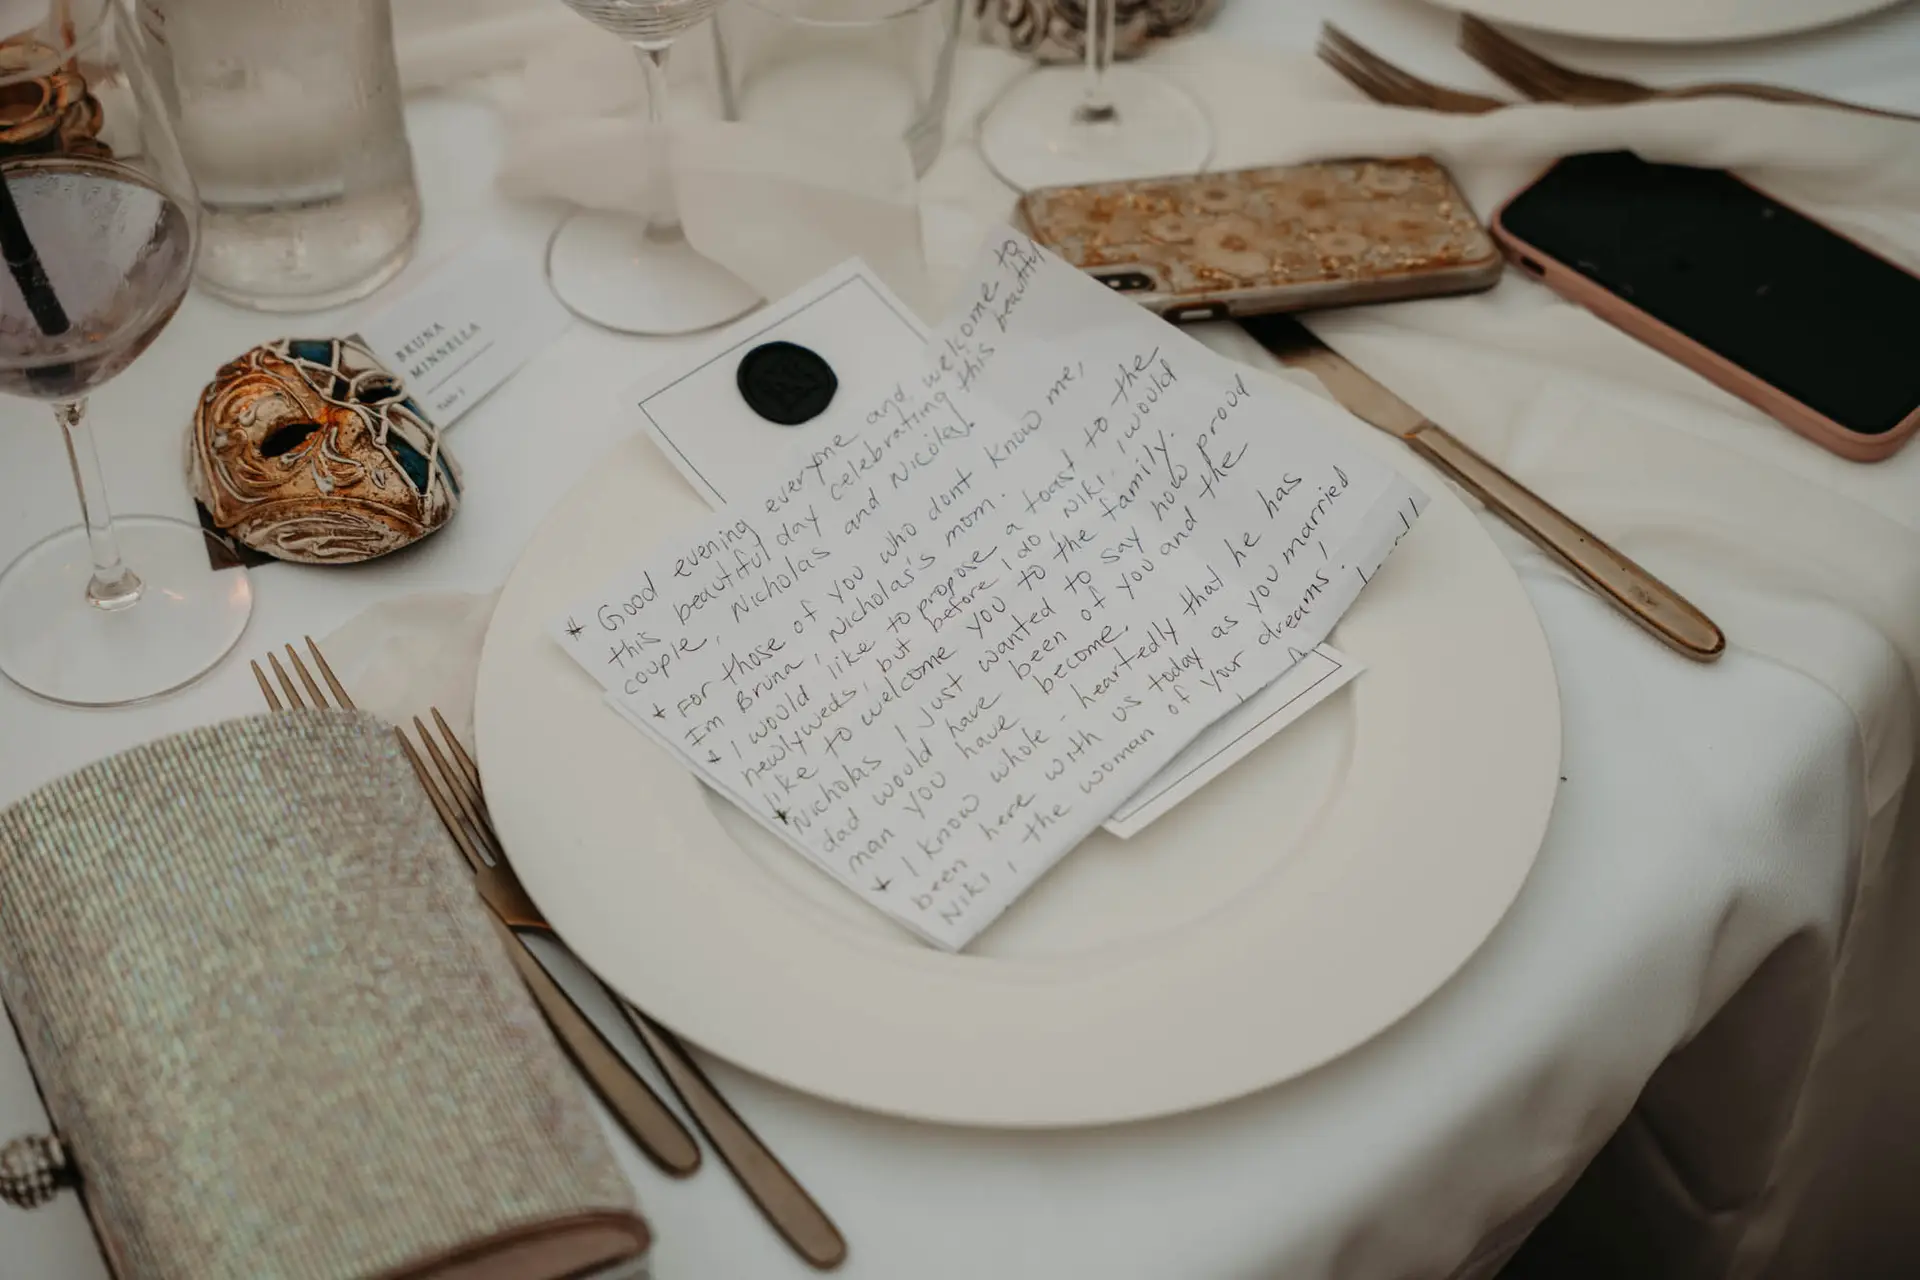 BRUNA
MINNELLA
Table 2
* Good evening everyone and welcome to
this beautiful day celebrating this beautiful
couple, Nicholas and Nicole.
* For those of you who dont know me,
Im Bruna, Nicholas's mom.
* I would like to propose a toast to the
newlyweds, but before I do, Niki, I would
like to welcome you to the family.
* Nicholas I just wanted to say how proud
dad would have been of you and the
man you have become.
* I know whole-heartedly that he has
been here with us today as you married
Niki, the woman of your dreams!